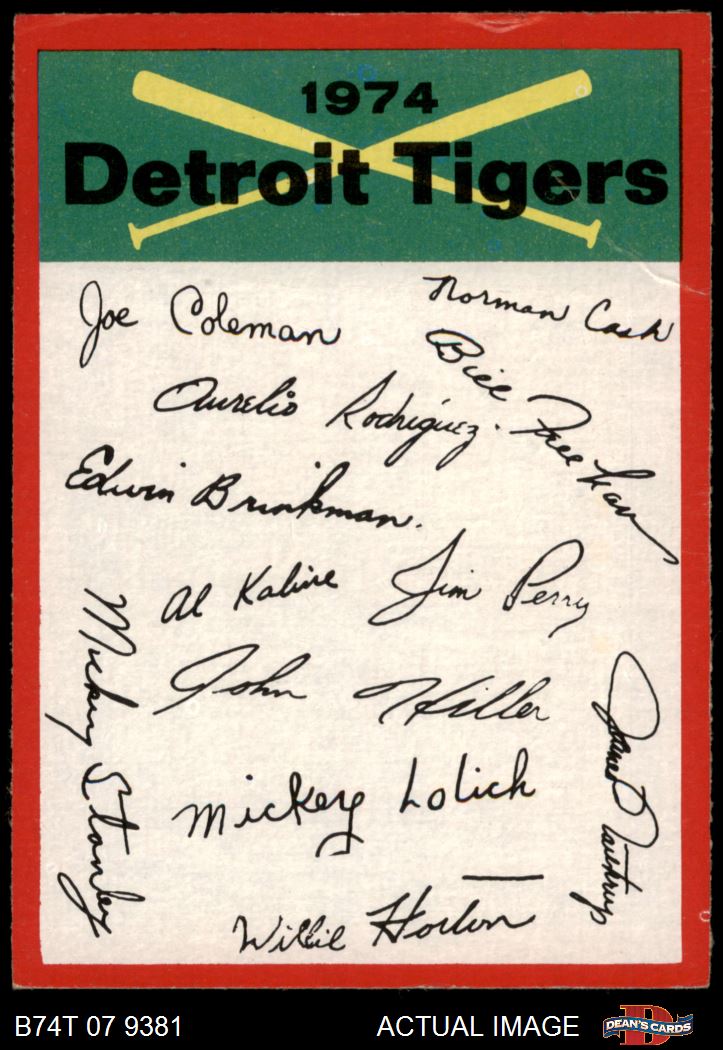 1974
Detroit Tigers
Joe Coleman
Norman Cash
Bill Freehan
Aurelio Rodriguez.
Edwin Brinkman.
Al Kaline
Jim Perry
Mickey Stanley
John Hiller
James Northrup
Mickey Lolich
Willie Horton
B74T 07 9381
ACTUAL IMAGE
D
DEAN'S CARDS